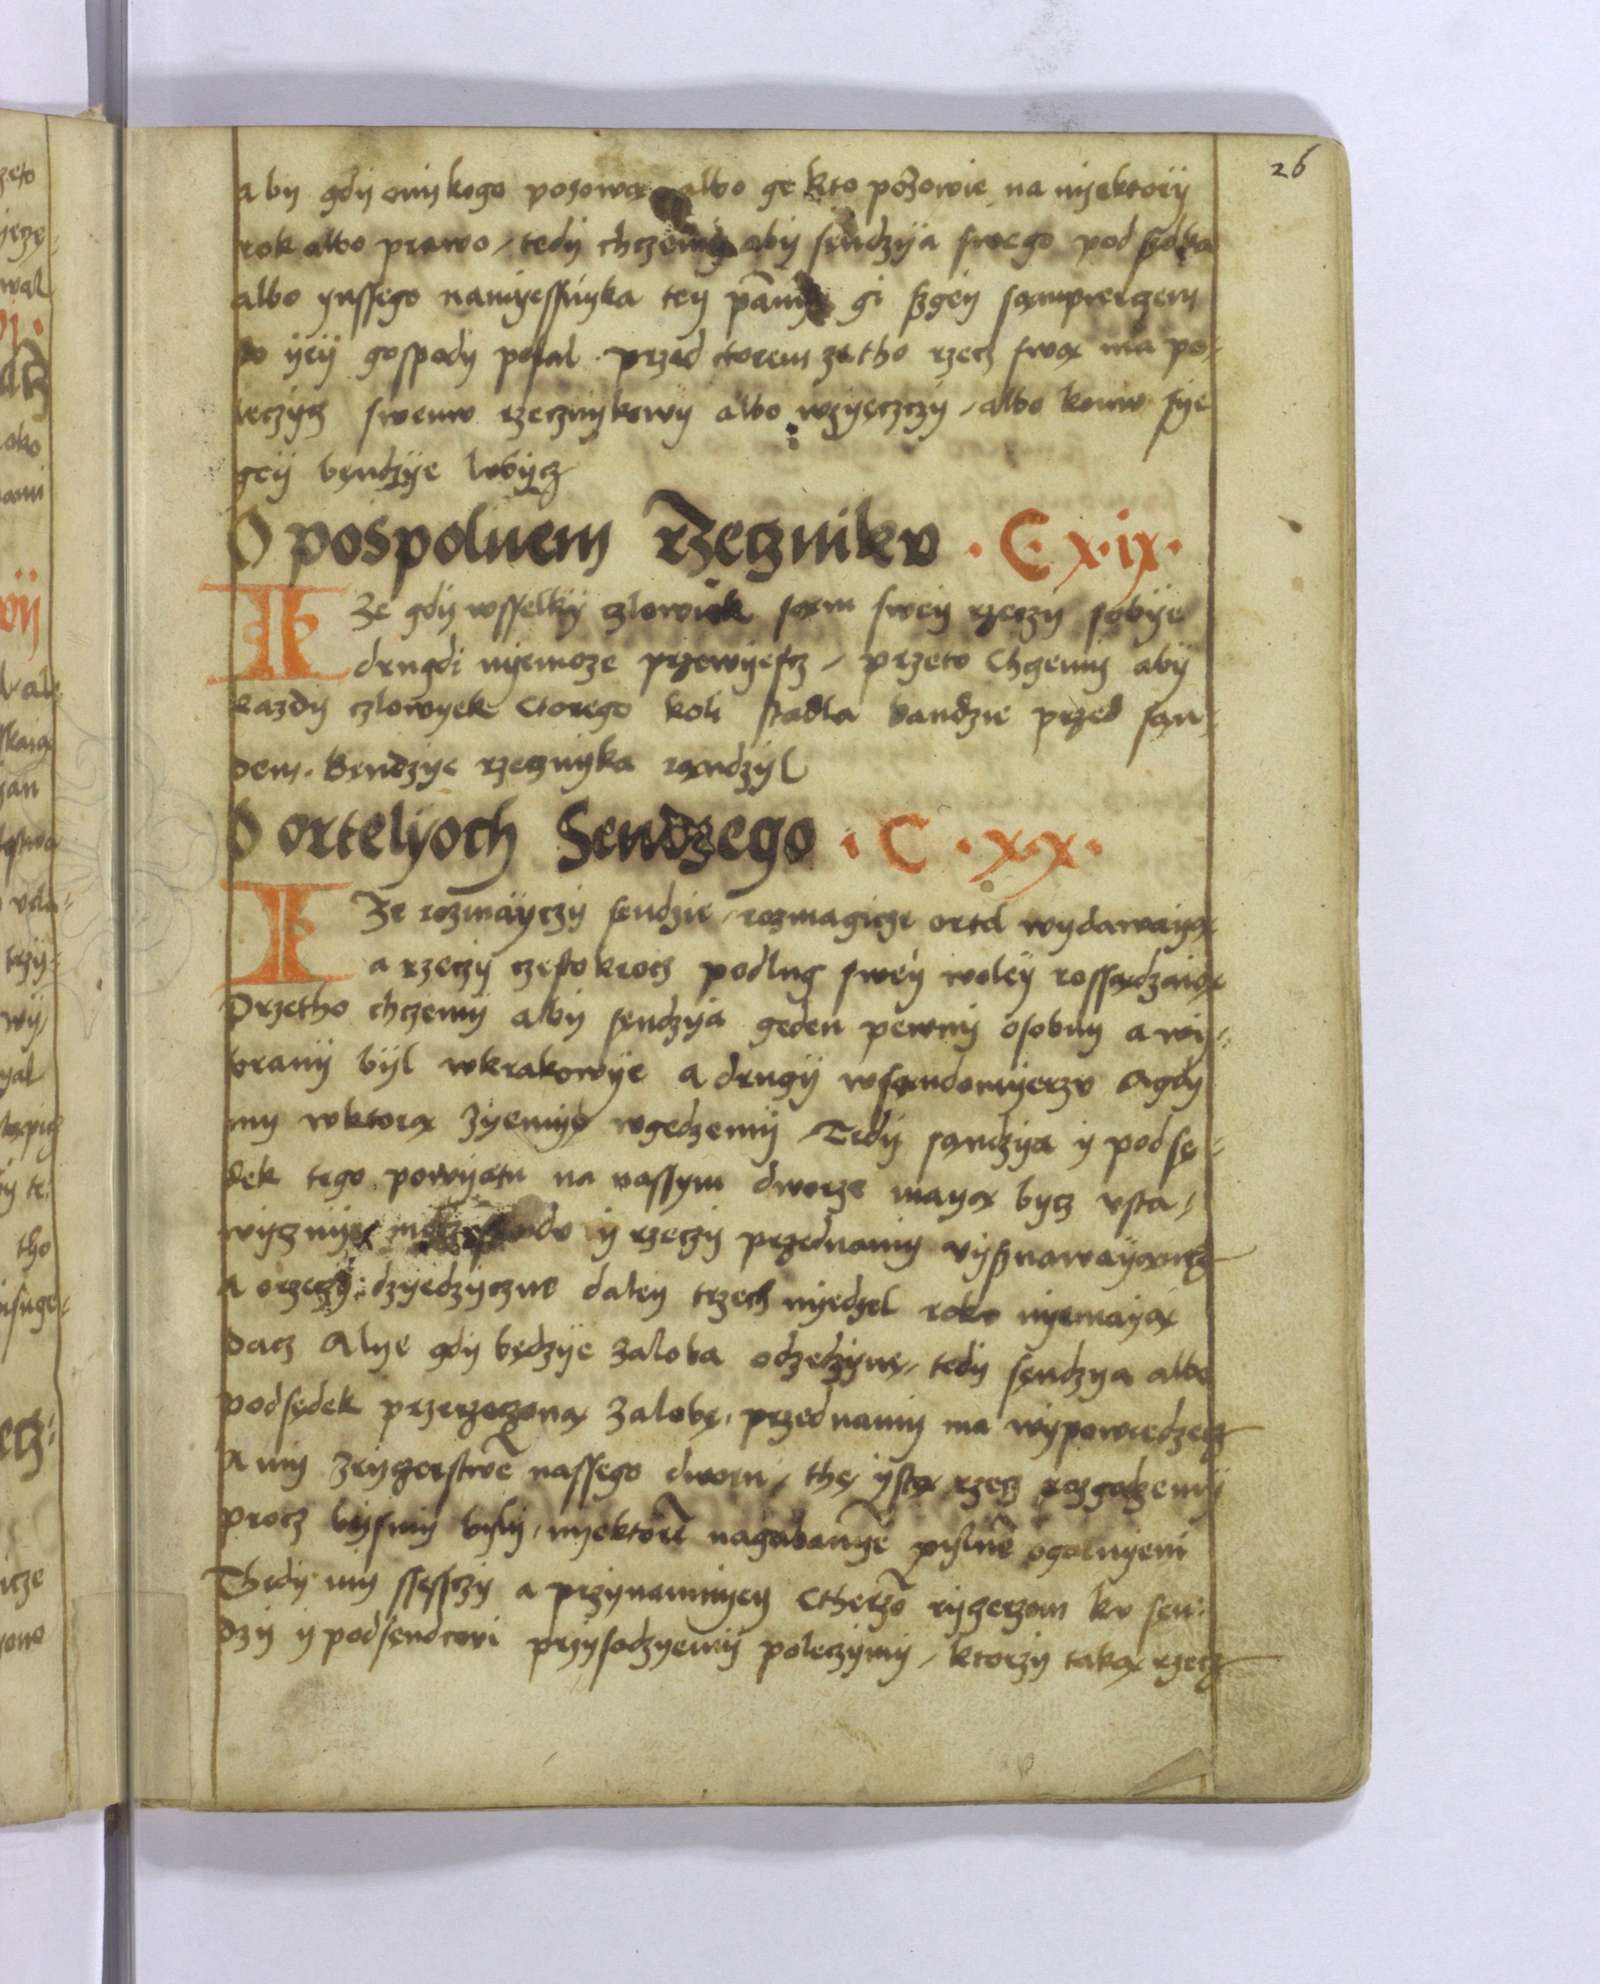 26
aby gdy ony kogo pozowᶏ albo ge kto pozowie na nyektory
rok albo prawo / tedy chczemy aby sendzya swego pod sędka
albo ynssego namyestnyka tey pāny gi szgey samprzerzem
do yey gospody posal przed ctorem zatho rzecz swᶏ ma po-
leczycz swemv rzecznykowy albo wzyęczczy / albo komv sye
gey będzye lvbycz
O pospolnem rzecznikv · C x·ix·
IZe gdy wsselky czlowiek sᶏm swey rzeczy sobye
drugdi nyemoze przewyescz / przeto Chczemy aby
kazdy czlowyek Ctorego koli stadla bandzie przed sᶏn-
dem. Bendzye rzecznyka rᶏndzyl
O ortelyoch Sendzego · C · x·x·
IZe rozmayczy sendzie / rozmagicze ortel wydawayᶏ
a rzeczy czestokrocz podlug swey woley rossᶏdzaiᶏ
Przetho chczemy aby sendzya geden pewny osobny a wi-
brany byl wkrakowye a drugy wsᶏndomyerzv Agdy
my wktorᶏ zyemyᶏ wgedzemy / Tedy sᶏndzya y podsę-
dek tego powyatu na nassym dworze mayᶏ bycz vsta-
wycznye y rzeczy przednamy vysznawayᶏncz
A orzeczy dzyedzyczne daley trzech nyedzel rokv nyemayᶏ
dacz Alye gdy będzye zaloba odzedzyny / tedy sendzya albo
podsędek przerzeczonᶏ zalobę przednamy ma wypowiedzecz
A my zrzyczerstwē nassego dworu / thę ystᶏ rzecz rozgadzemy
procz bysmy byly / nyektorē nagabanyē pylnē ogarnyeni
Thedy my ssesczy a przynamnyey Ctherzō ryczerzom kv sen-
dzy y podsendcovi przysadzyemy poleczymy / ktorzy takᶏ rzecz